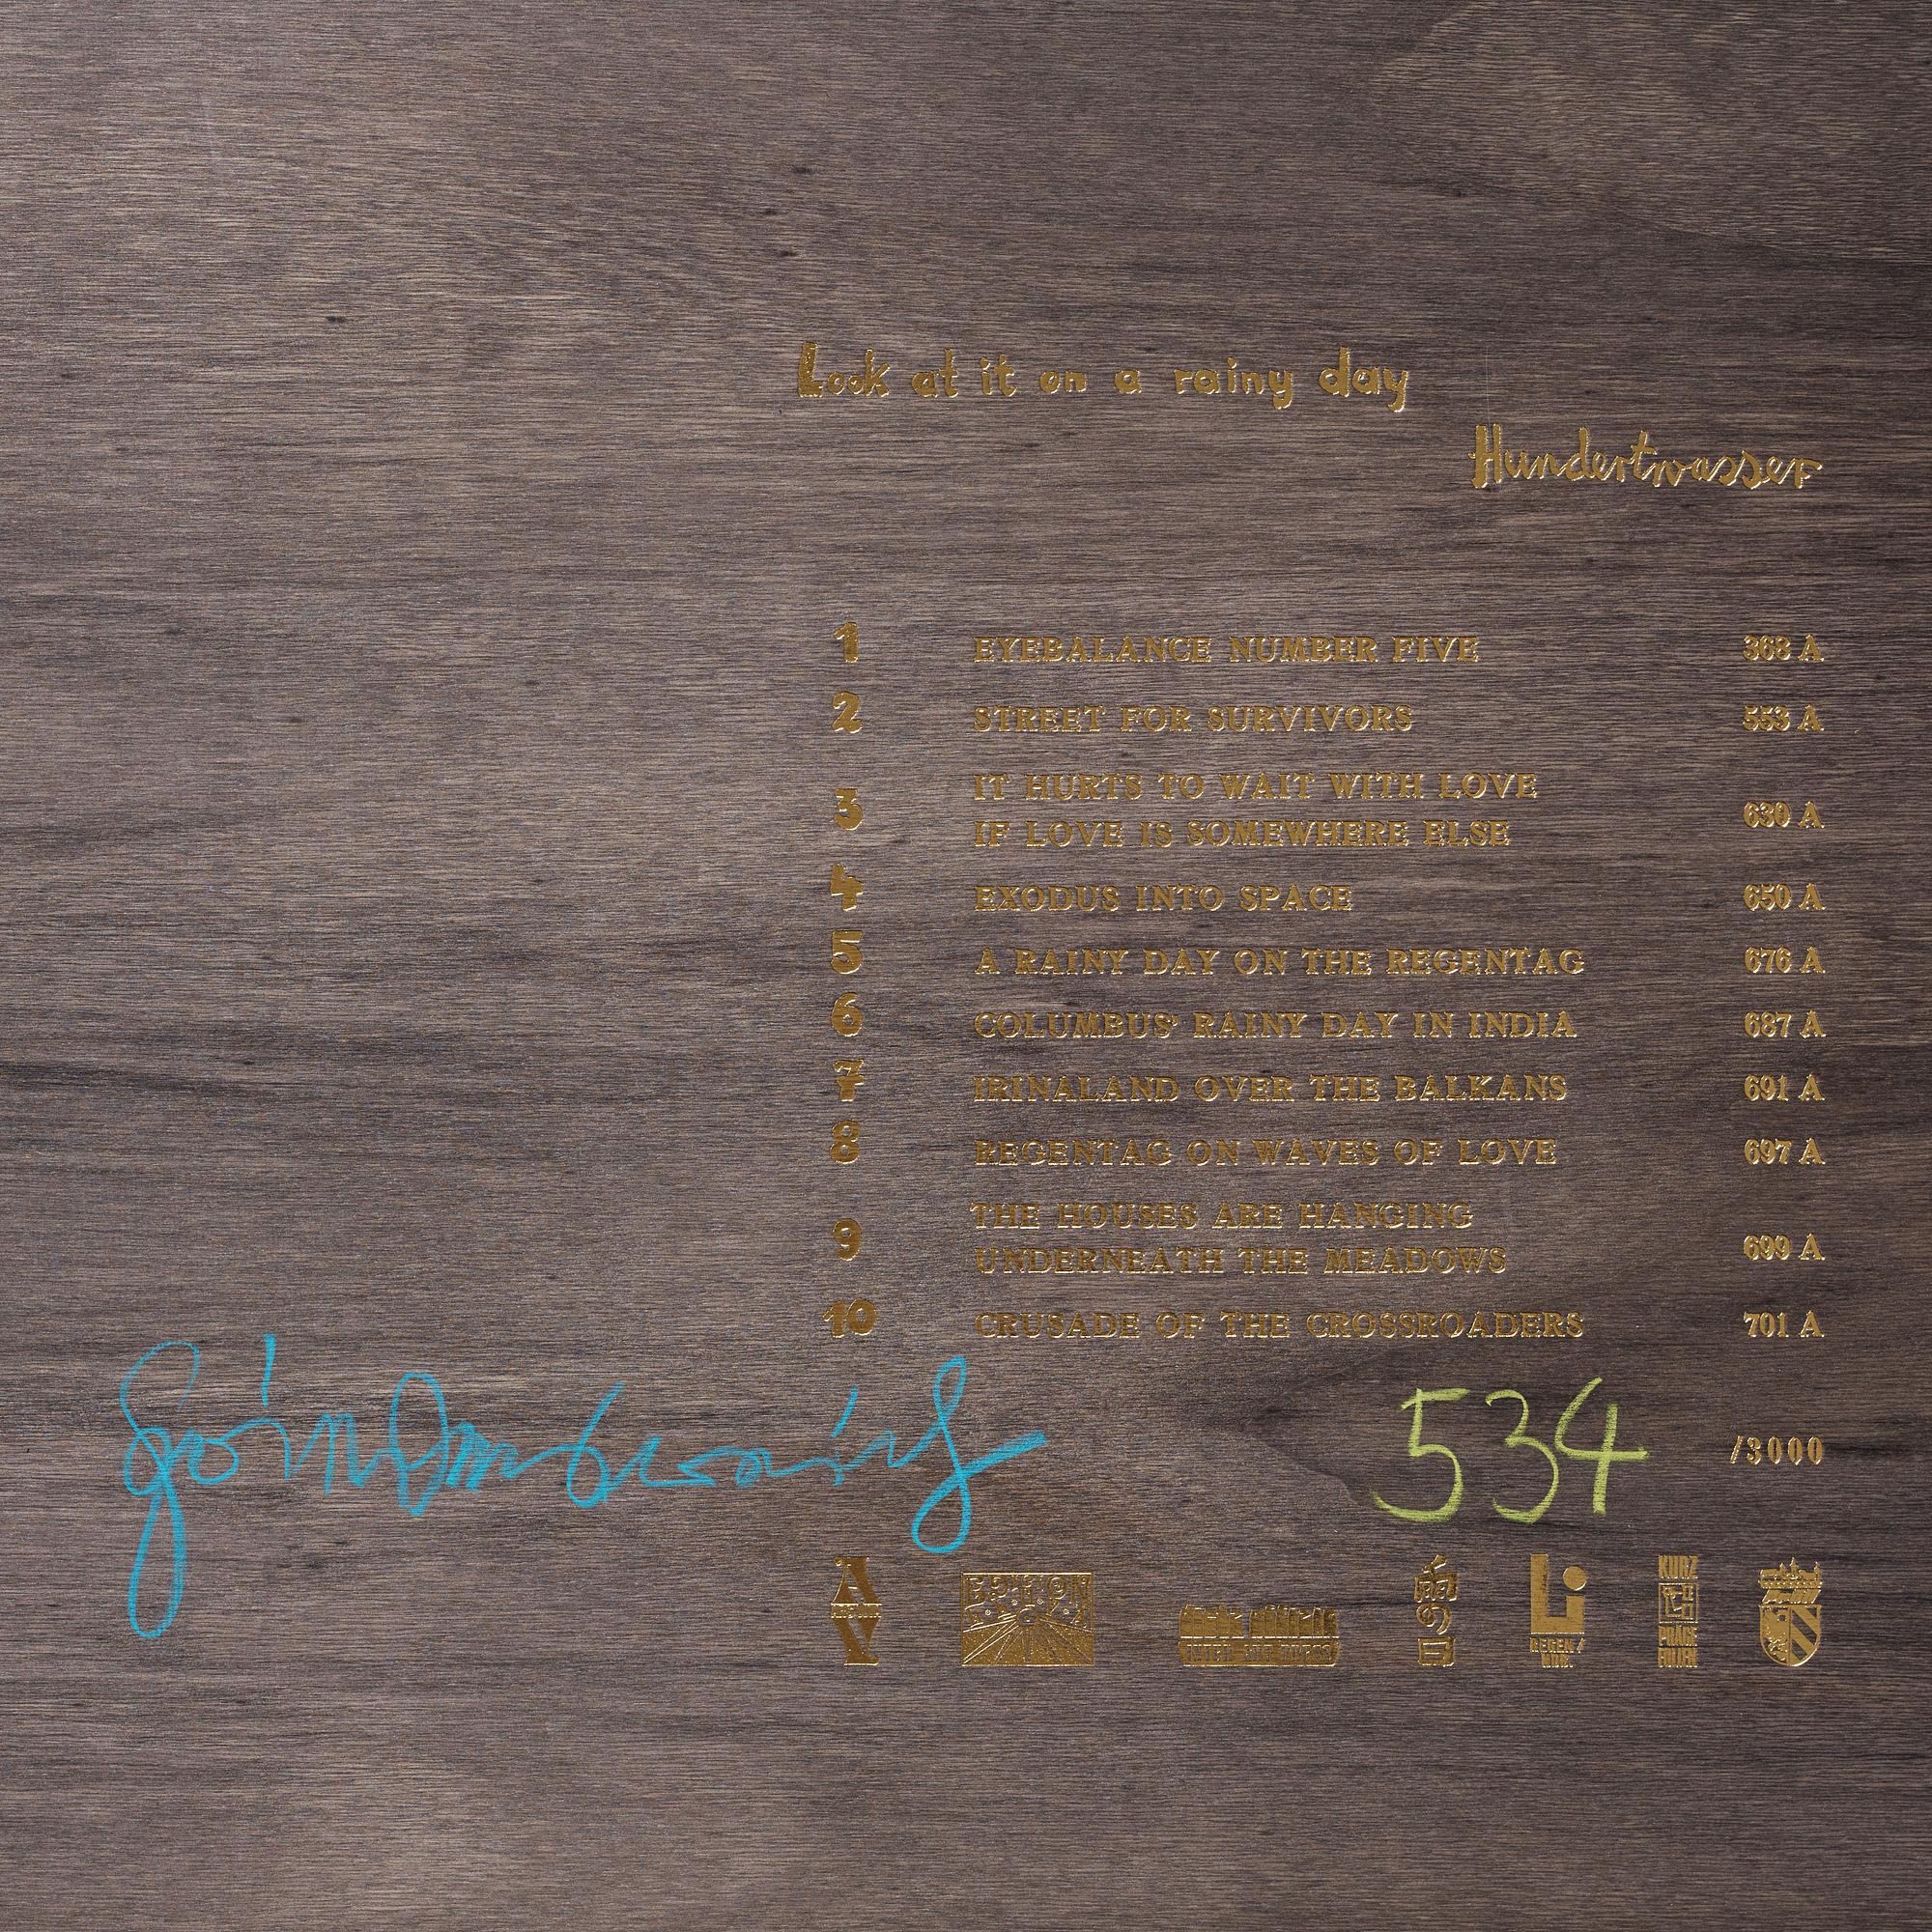 Look at it on a rainy day
Hundertwasser
1 EYEBALANCE NUMBER FIVE 368 A
2 STREET FOR SURVIVORS 553 A
3 IT HURTS TO WAIT WITH LOVE
IF LOVE IS SOMEWHERE ELSE 630 A
4 EXODUS INTO SPACE 650 A
5 A RAINY DAY ON THE REGENTAG 676 A
6 COLUMBUS' RAINY DAY IN INDIA 687 A
7 IRINALAND OVER THE BALKANS 691 A
8 REGENTAG ON WAVES OF LOVE 697 A
9 THE HOUSES ARE HANGING
UNDERNEATH THE MEADOWS 699 A
10 CRUSADE OF THE CROSSROADERS 701 A
534 /3000
A
EDITION
雨の日
KURZ
PRÄGE
FOLIEN